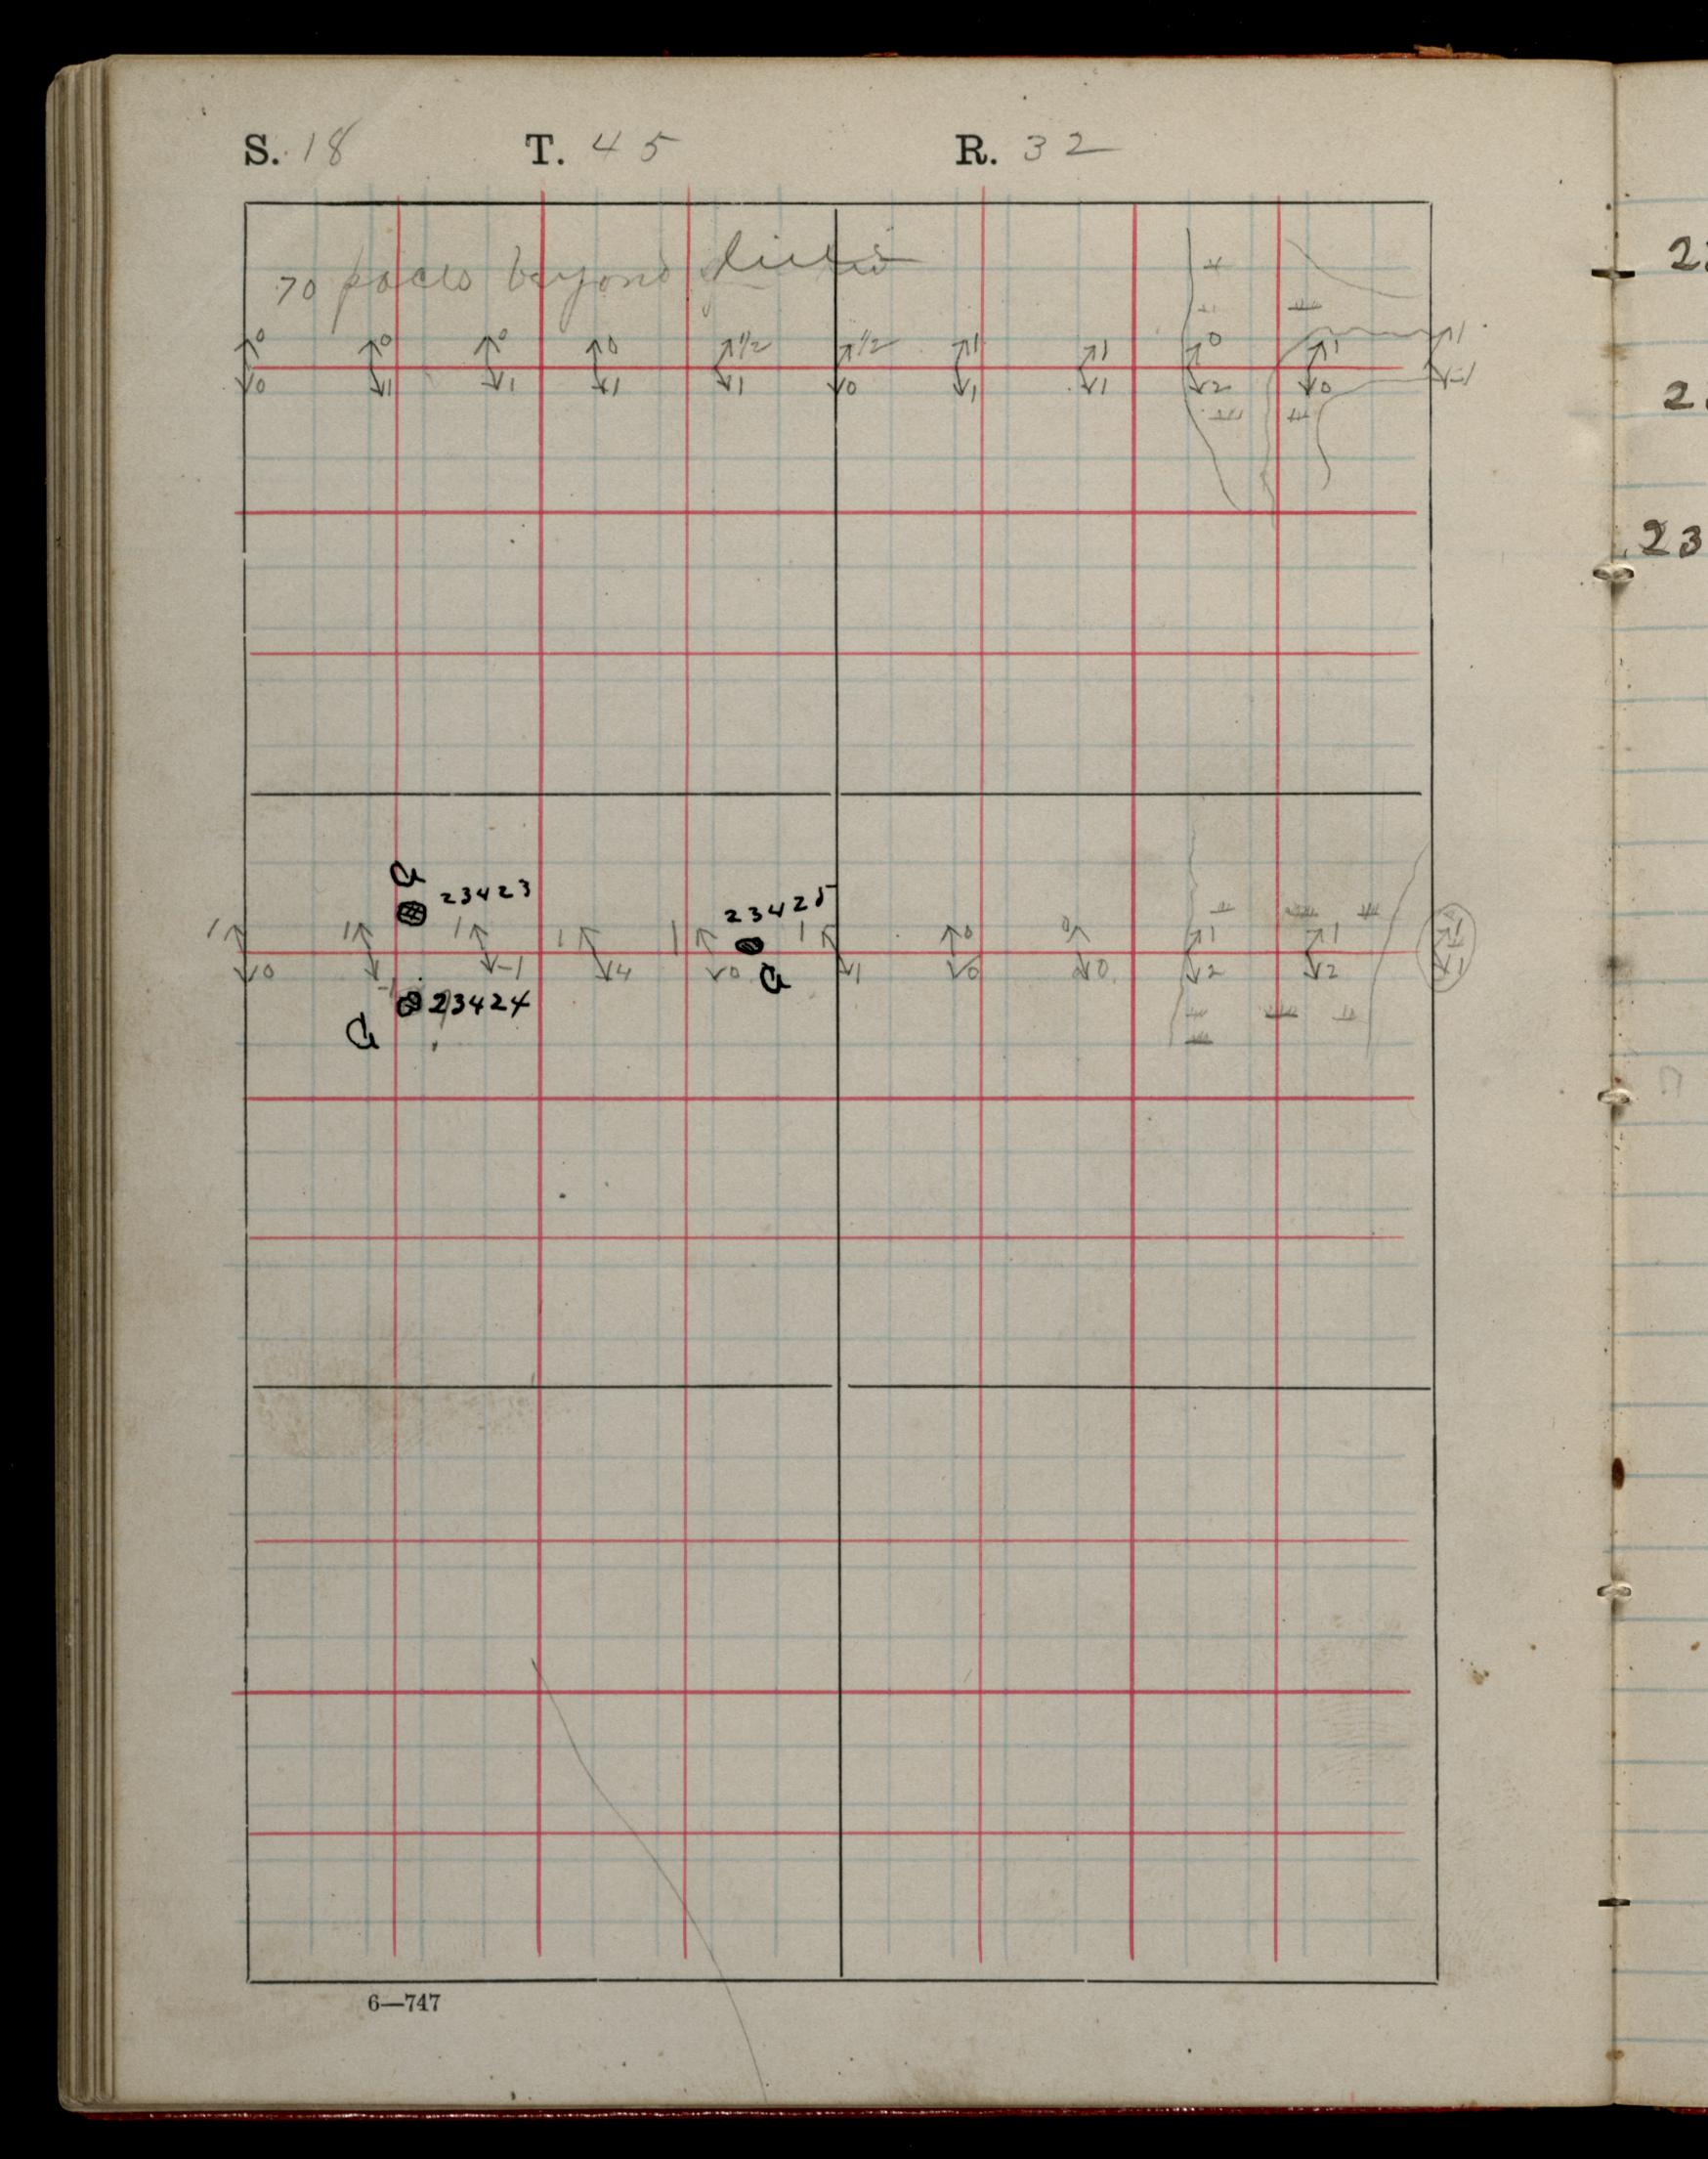 S. 18 T. 45 R. 32
70 paces beyond
0 0 0 0 1/2 1/2 1 1 0 1 1
0 1 1 1 1 0 1 1 2 0 -1
G
23423
23425
1 1 1 1 1 1 0 0 1 1 1
0 -1 -1 4 0 1 0 0 2 2 1
G
23424
G
6—747
2
2
23